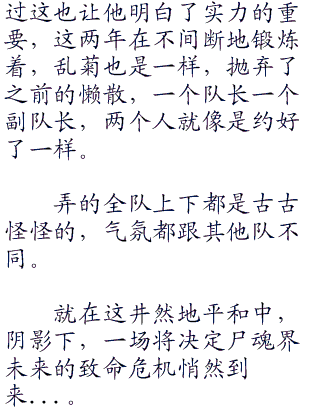 过这也让他明白了实力的重
要，这两年在不间断地锻炼
着，乱菊也是一样，抛弃了
之前的懒散，一个队长一个
副队长，两个人就像是约好
了一样。
弄的全队上下都是古古
怪怪的，气氛都跟其他队不
同。
就在这井然地平和中，
阴影下，一场将决定尸魂界
未来的致命危机悄然到
来...。